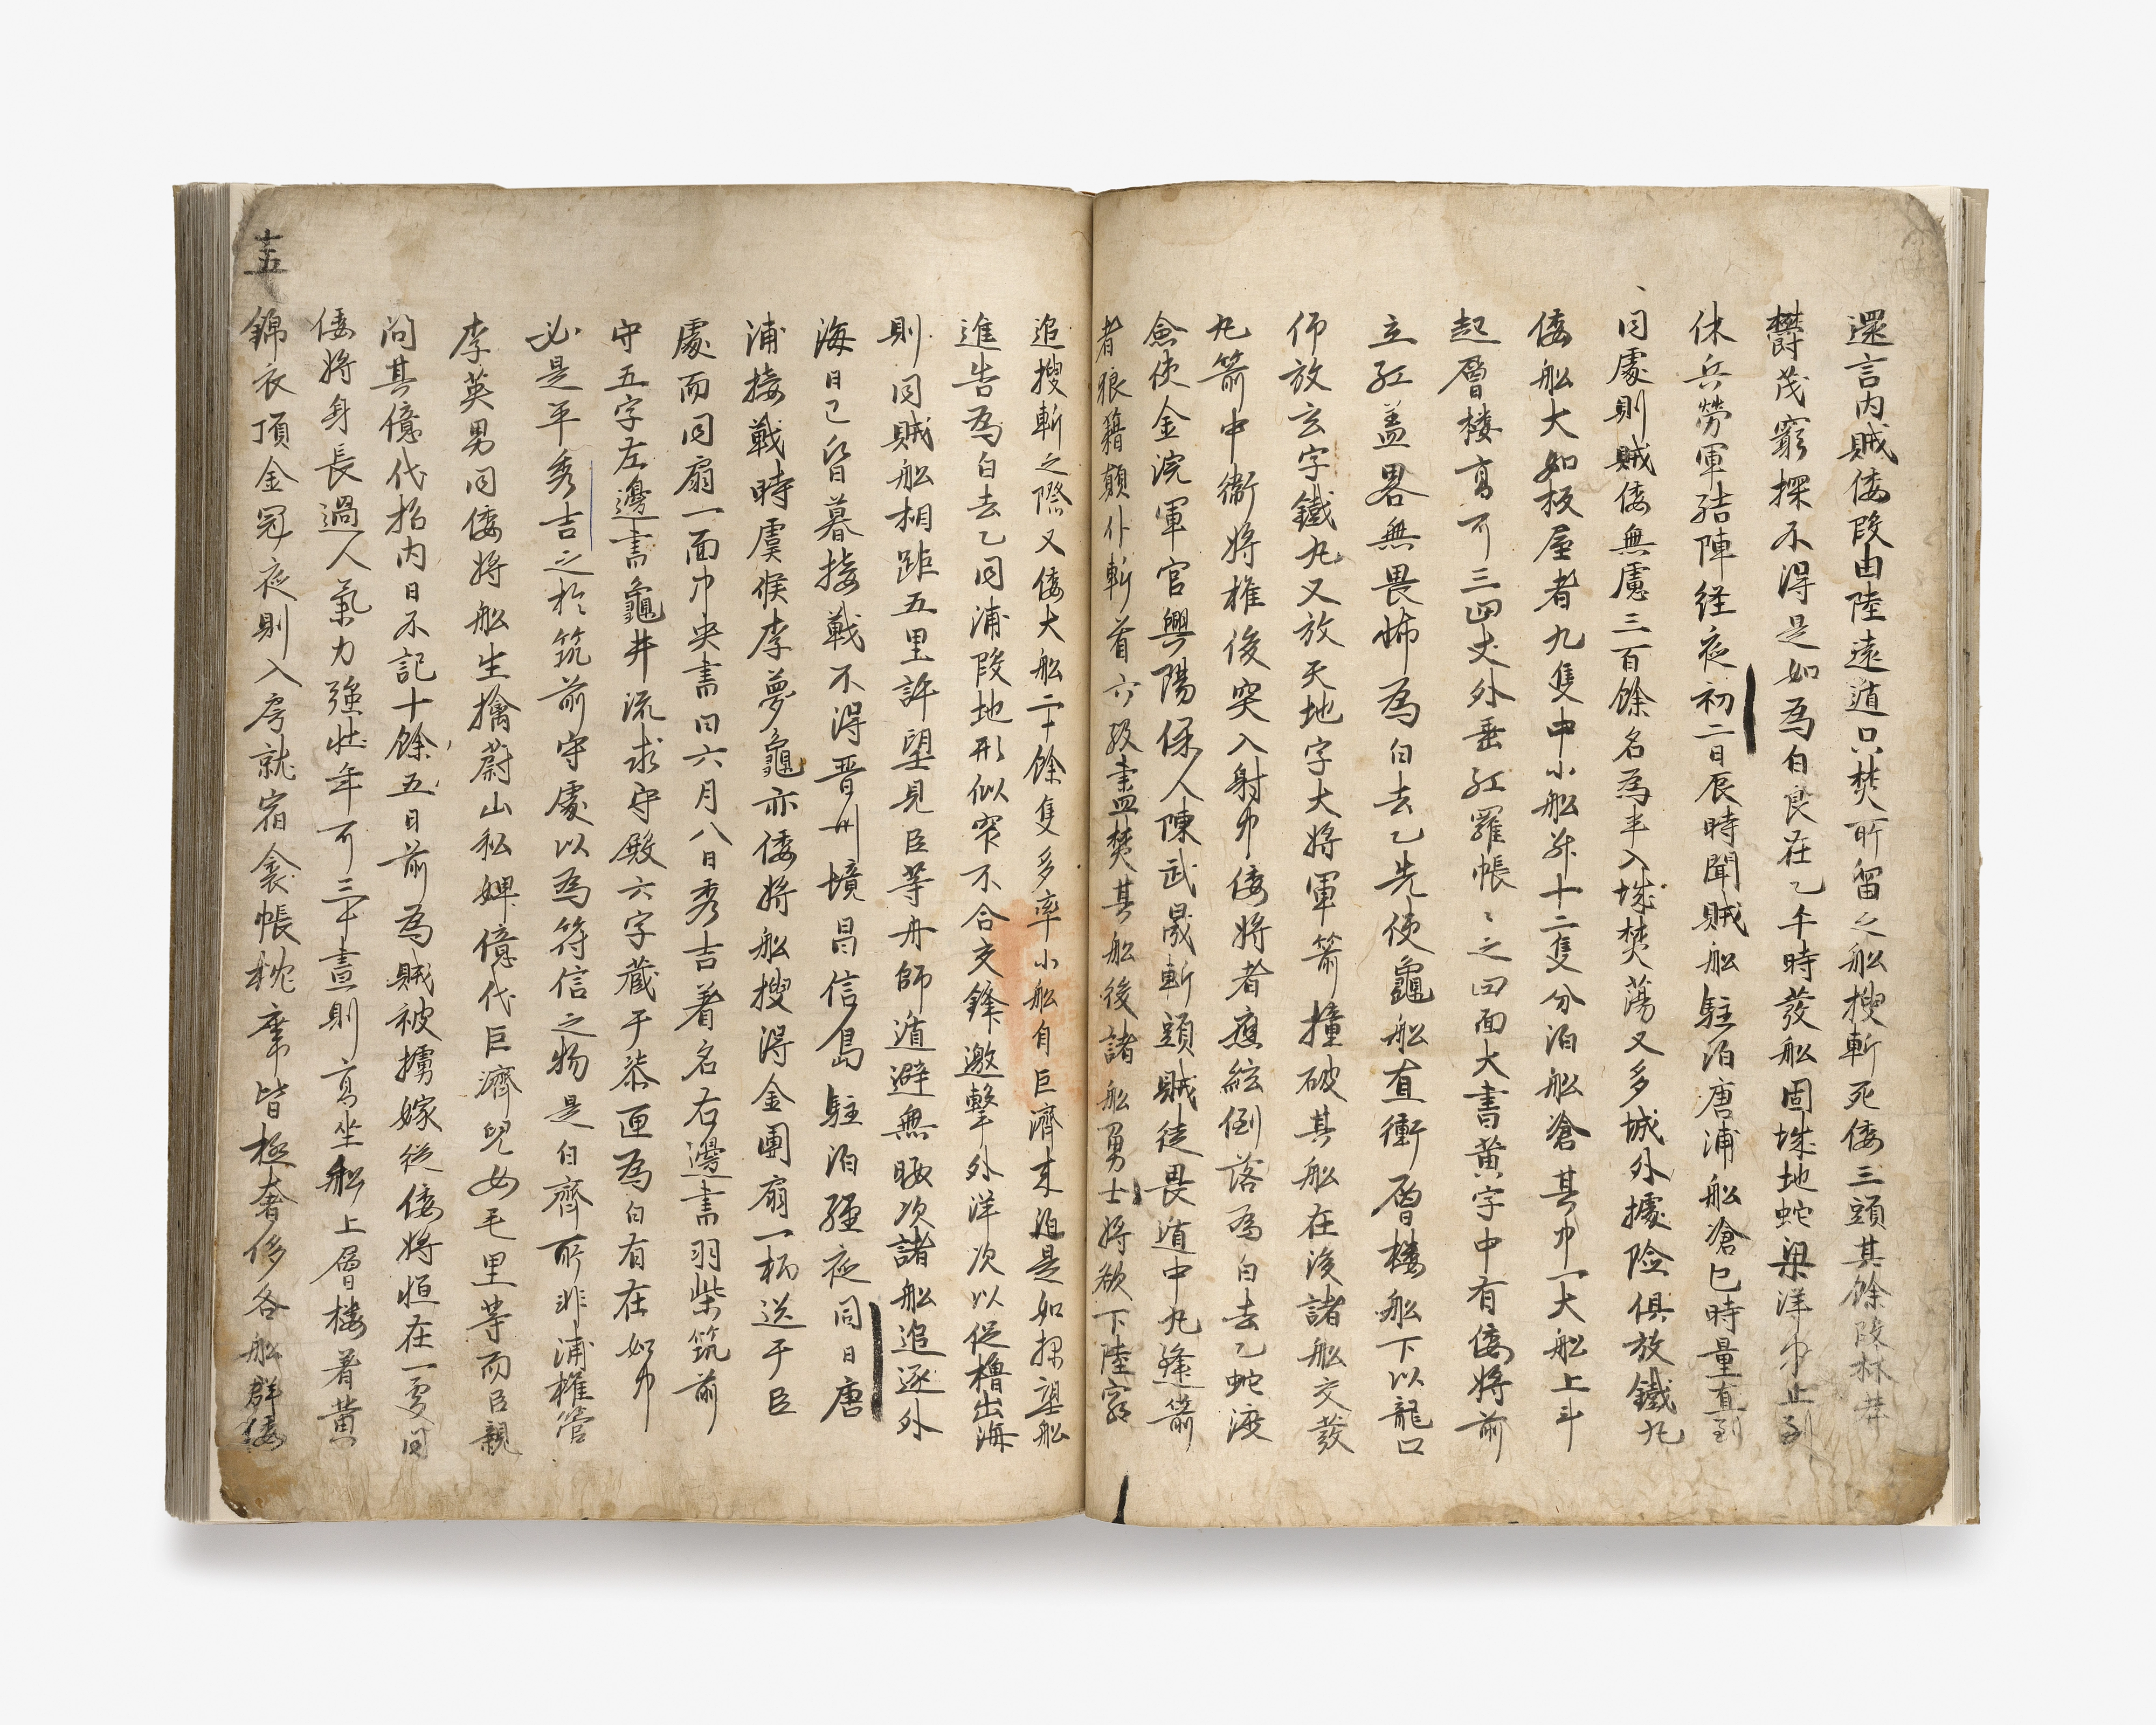 還言內賊倭段由陸遠遁只焚所留之船搜斬死倭三頭其餘段林莽
欝茂窮探不得是如爲白良在乙午時發船固城地蛇梁洋中止到
休兵勞軍結陣経夜初二日辰時聞賊船駐泊唐浦船滄巳時量直到
同處則賊倭無慮三百餘名爲半入城焚蕩又多城外據險俱放鐵丸
倭船大如板屋者九隻中小船幷十二隻分泊船滄其中一大船上斗
起層楼高可三四丈外垂紅羅帳〻之四面大書黃字中有倭將前
立紅盖畧無畏怖爲白去乙先使龜船直衝層樓船下以龍口
仰放玄字鐵丸又放天地字大將軍箭撞破其船在後諸船交發
丸箭中衛將權俊突入射中倭將者應絃倒落爲白去乙蛇渡
僉使金浣軍官興陽保人陳武晟斬頭賊徒畏遁中丸逢箭
者狼籍顛仆斬首六級盡焚其船後諸船勇士將欲下陸窮
追搜斬之際又倭大船二十餘隻多率小船自巨濟來泊是如探望船
進告爲白去乙同浦段地形似窄不合交鋒邀擊外洋次以促櫓出海
則同賊船相距五里許望見臣等舟師遁避無暇次諸船追逐外
海日已皆暮接戰不得晋州境昌信島駐泊経夜同日唐
浦接戰時虞候李夢龜亦倭將船搜得金團扇一柄送于臣
處而同扇一面中央書曰六月八日秀吉着名右邊書羽柴筑前
守五字左邊書龜井流求守殿六字藏于柒匣爲白有在如中
必是平秀吉之於筑前守處以爲符信之物是白齊所非浦權管
李英男同倭將船生擒蔚山私婢億代巨濟兒女毛里等而臣親
問其億代招內日不記十餘五日前爲賊被擄嫁従倭將恒在一處同
倭將身長過人氣力強壯年可三十晝則高坐船上層楼着黃
錦衣頂金冠夜則入房就宿衾帳枕席皆極奢侈各船群倭